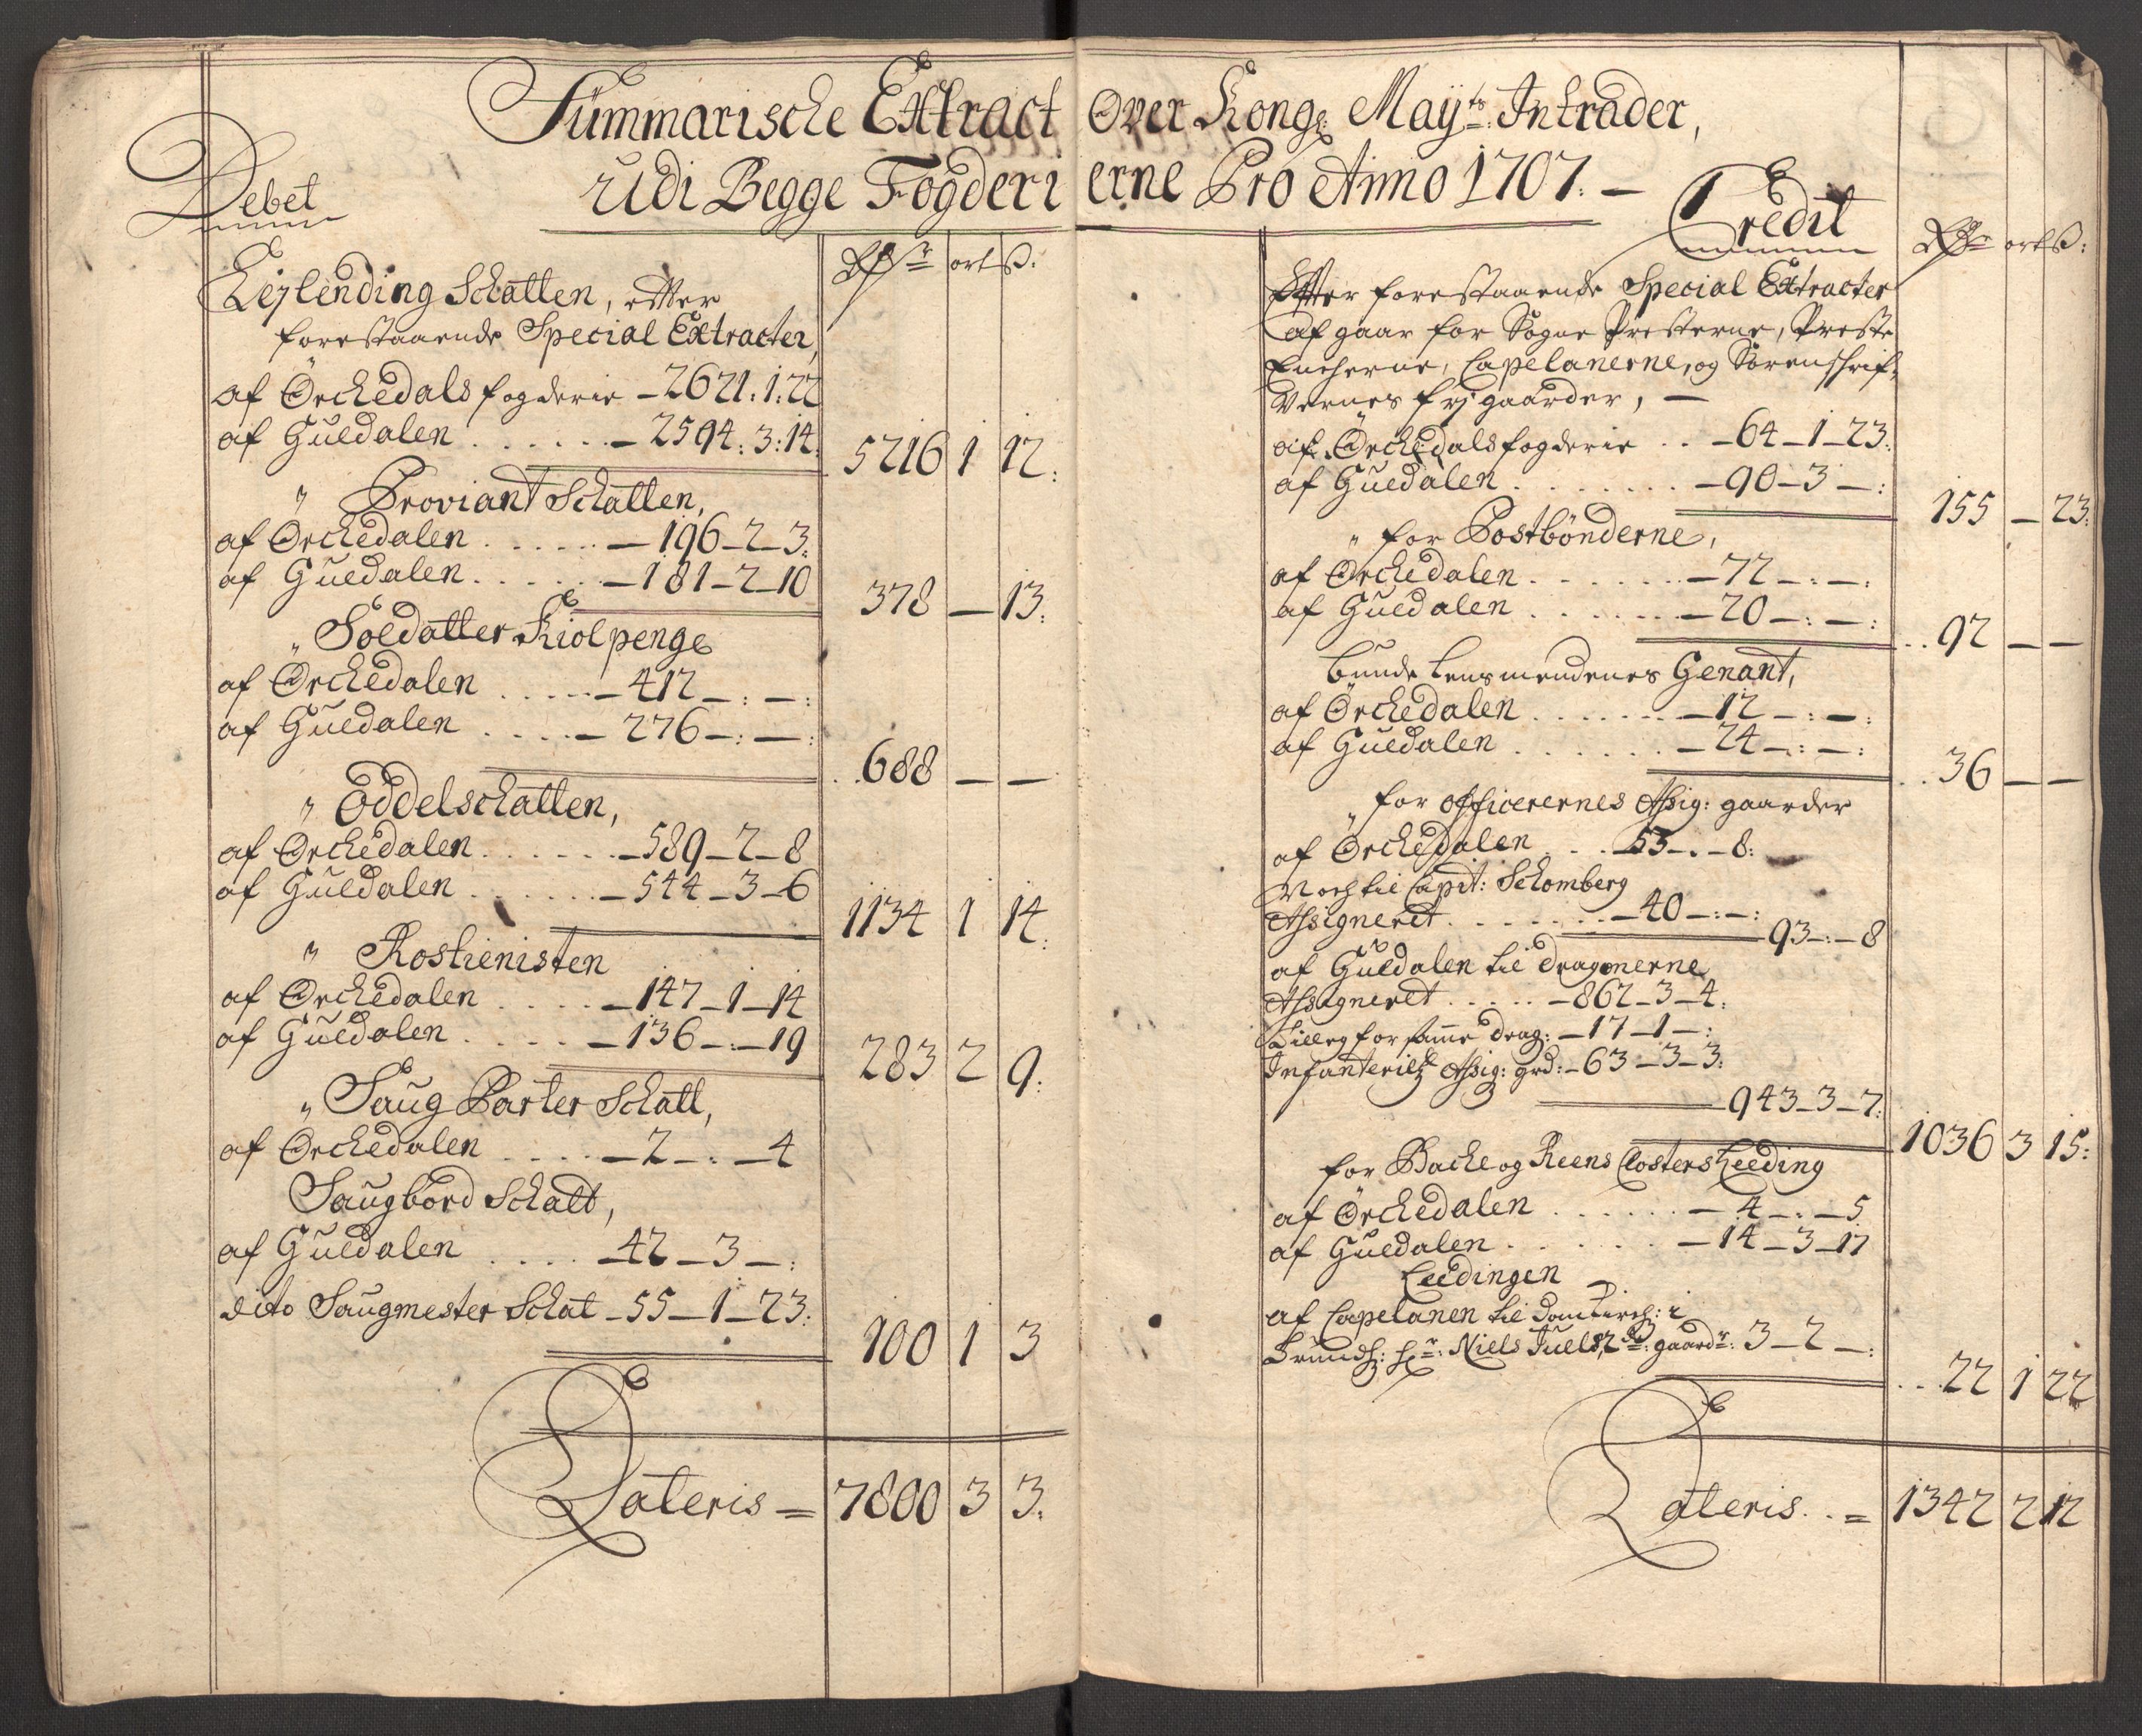 Summarische Extract Over Kong: Maÿts Intrader,
Udi Begge Fogderierne Pro Anno 1707. —
Debet
Rdr ort ß:
Leÿlending Schatten, efter
forestaaende Special Extracter,
af Örchedals fogderie - 2621. 1: 22
af Guldalen . . . . . . - 2594: 3: 14: 5216 1 12:
" Proviant Schatten,
af Orchedalen . . . . . . — 196 - 2 - 3:
af Guldalen . . . . . . — 181 - 2 - 10 378 — 13:
" Soldatter Kiolpenge
af Orchedalen . . . . . — 412 —: —:
af Guldalen . . . . . — 276 —: —: 688 — —
" Oddelschatten,
af Orchedalen . . . . . . — 589 - 2 - 8
af Guldalen . . . . . . — 544 - 3 - 6 1134 1 14:
" Rostienisten
af Orchedalen . . . . . — 147 - 1 - 14
af Guldalen . . . . . — 136 —: — 19 283 2 9:
" Saug Parter Schatt,
af Orchedalen . . . . — 2 —. — 4
Saugbord Schatt,
af Guldalen . . . . — 42 — 3 —:
dito Saugmester Schat - 55 — 1 — 23: 100 1 3
Lateris = 7800 3 3:
Credit
Rdr ort ß:
Efter forestaaende Special Extracter
afgaar for Sogne Presterne, Preste
Enkerne, Capelanerne, og Sorenschrif-
vernes frj gaarder, —
af Örchedals fogderie . . — 64 — 1 — 23:
af Guldalen . . . . . . . — 90 — 3 —: 155 — 23:
" for Postbönderne,
af Örchedalen . . . . . . . — 72 —: —:
af Guldalen . . . . . . . — 20 —: —: . . 92 — —
bunde Lensmendenes Genant,
af Örchedalen . . . . . . . — 12 —: —:
af Guldalen . . . . . . . — 24 —: —: . . 36 — —
" for officerernes Assig: gaarder
af Örchedalen . . . — 53 —. — 8:
Noch til Capit: Schomberg
Assigneret . . . . . . . — 40 —: —: 93 —: — 8
af Guldalen til dragonerne
Assigneret . . . . . — 862 — 3 — 4:
Tilleg for samme drag: — 17 — 1 —:
Infanteriets Assig: grd: — 63 — 3 — 3:
943 — 3 — 7: 1036 3 15:
for Backe og Reens Closters Leeding
af Örchedalen . . . . . . — 4 —: — 5
af Guldalen . . . . . . — 14 — 3 — 17
Leedingen
af Capelanen til domkirch: i
Trundh: Hr: Niels Juels 2de gaardr: 3 — 2 —: . . . 22 1 22
Lateris . . = 1342 2 12